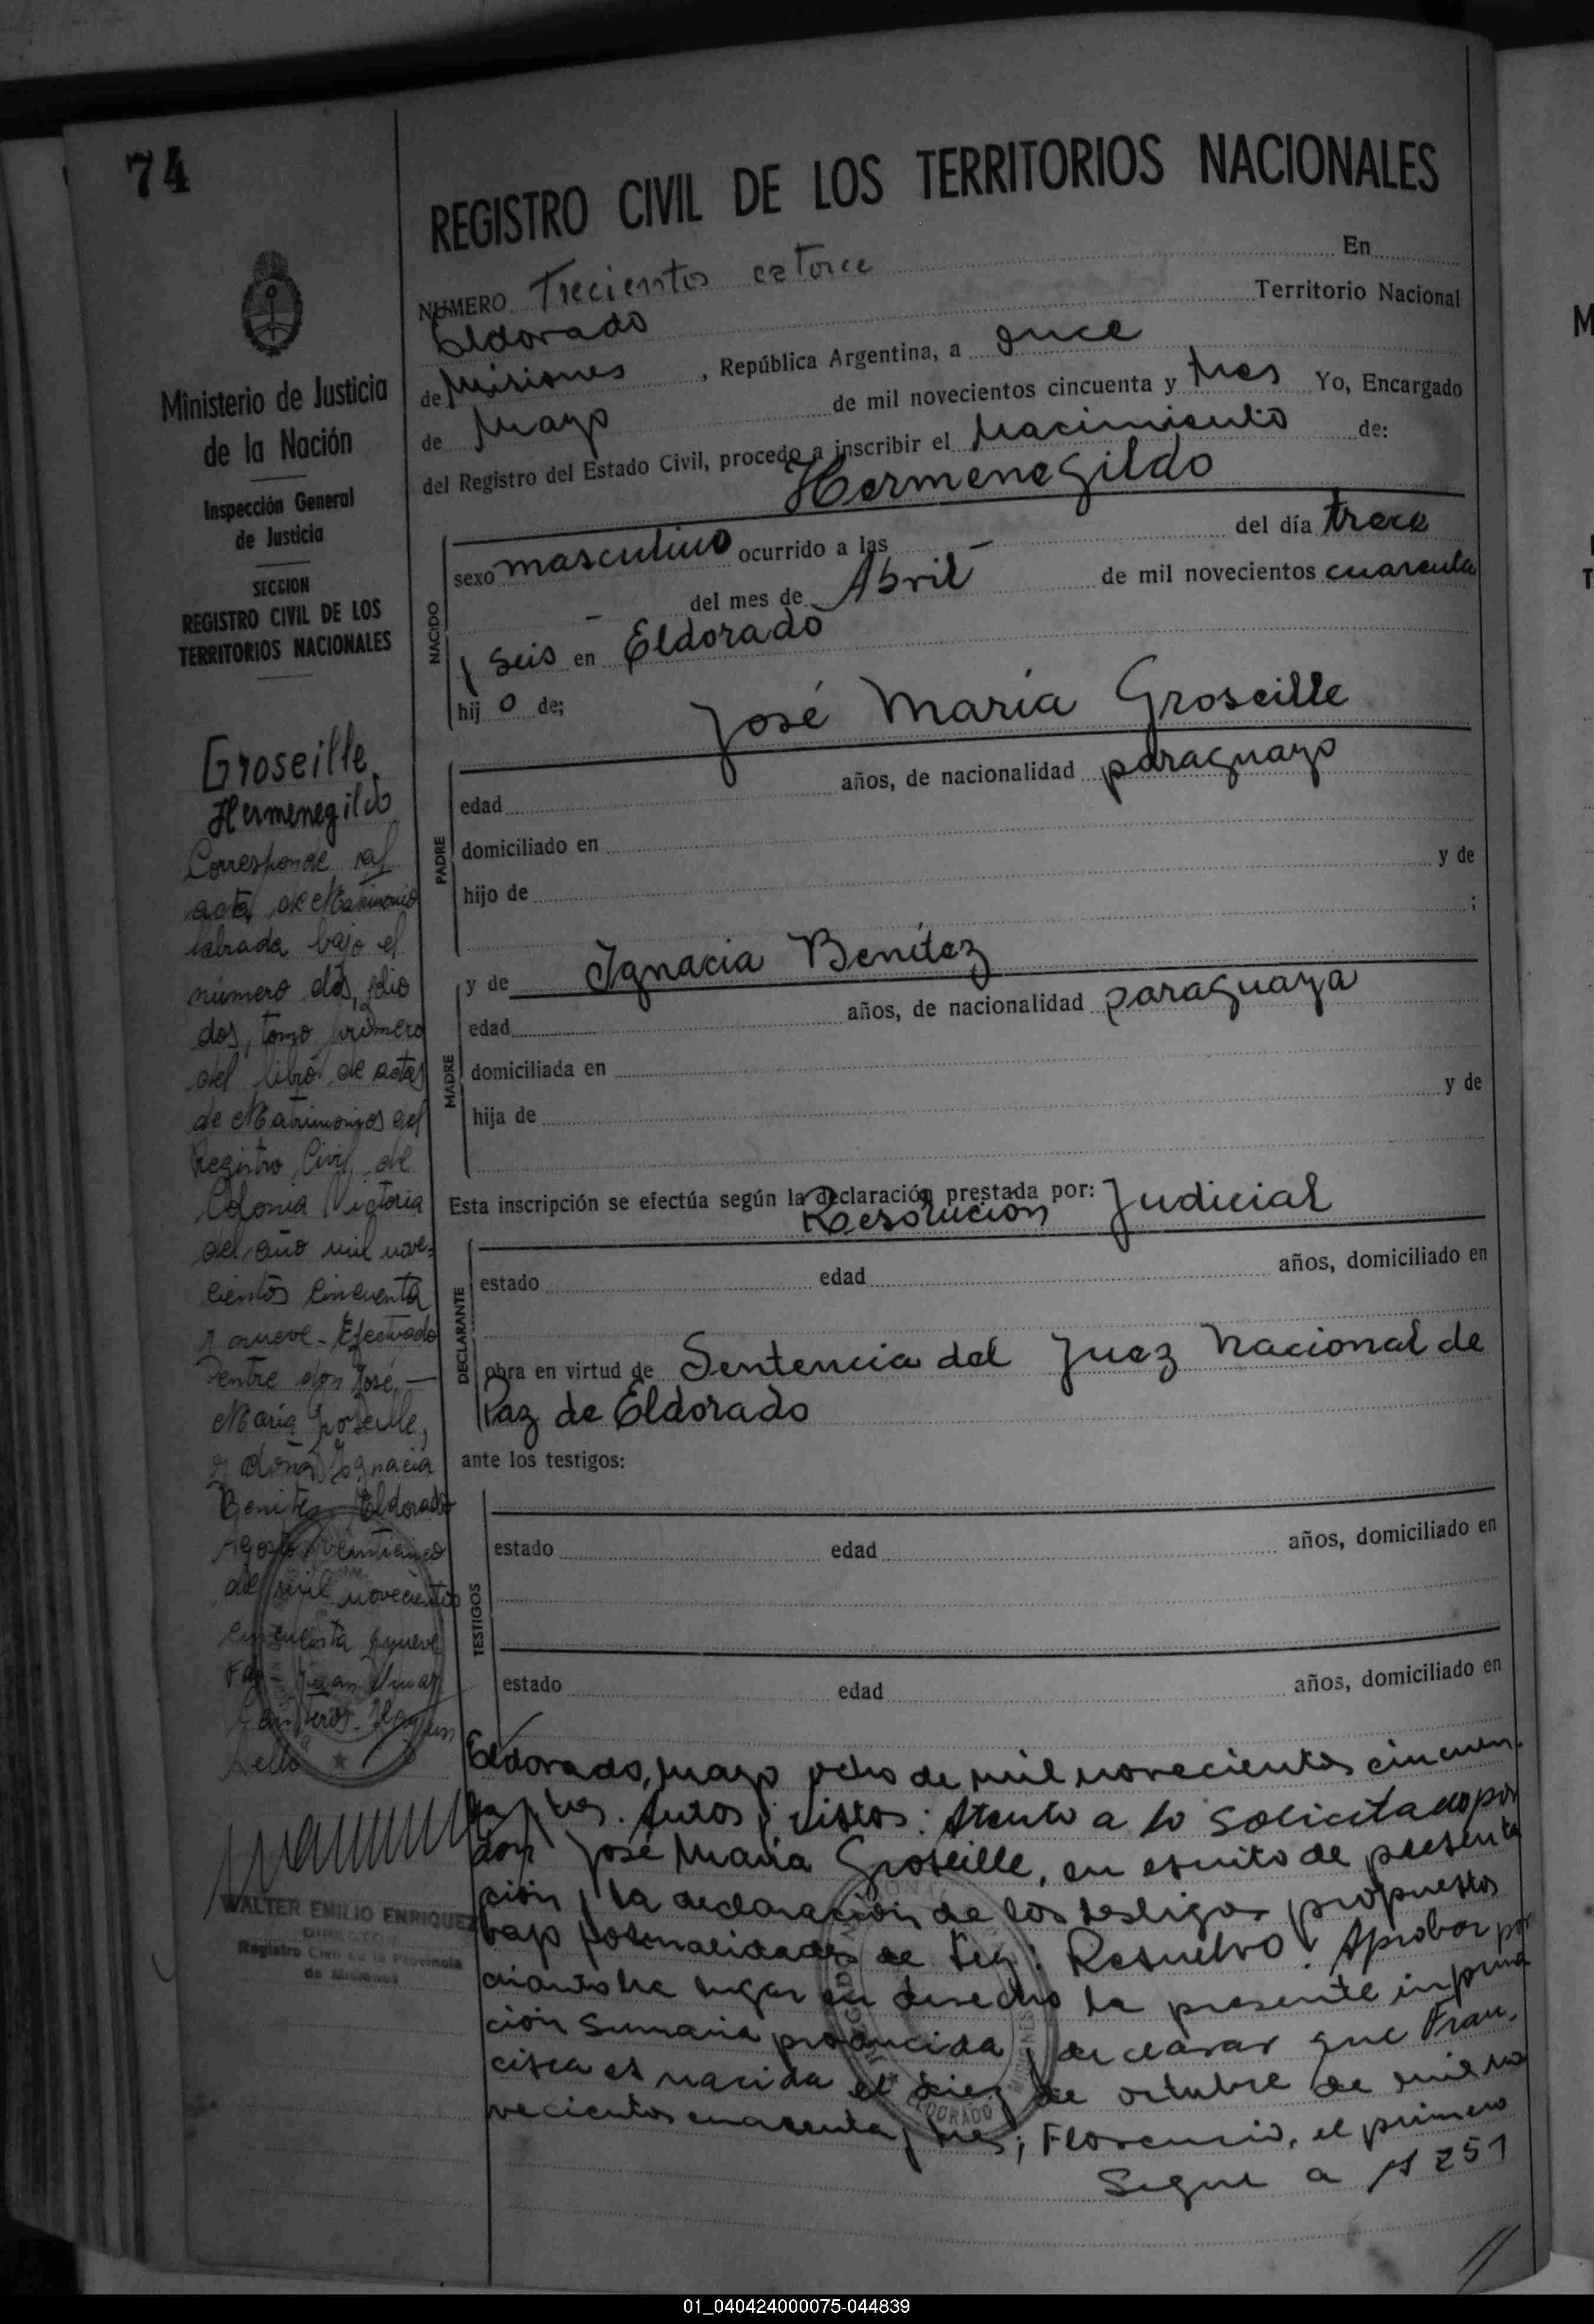 74
REGISTRO CIVIL DE LOS TERRITORIOS NACIONALES
NUMERO Trecientos catorce En
Eldorado Territorio Nacional
de Misiones, República Argentina, a once
de Mayo de mil novecientos cincuenta y tres Yo, Encargado
del Registro del Estado Civil, procedo a inscribir el Nacimiento de:
Hermenegildo
NACIDO
sexo masculino ocurrido a las — del día trece
— del mes de Abril de mil novecientos cuarenta
y seis en Eldorado
hijo de;
José María Groseille
PADRE
edad años, de nacionalidad paraguayo
domiciliado en
hijo de y de
;
y de Ignacia Benítez
MADRE
edad años, de nacionalidad paraguaya
domiciliada en
hija de y de
Esta inscripción se efectúa según la declaración prestada por:
Resolución Judicial
DECLARANTE
estado edad años, domiciliado en
obra en virtud de Sentencia del Juez Nacional de
Paz de Eldorado
ante los testigos:
TESTIGOS
estado edad años, domiciliado en
estado edad años, domiciliado en
Eldorado, mayo ocho de mil novecientos cincuen-
ta y tres. Autos y vistos: Atento a lo solicitado por
don José María Groseille, en escrito de presenta
ción y la declaración de los testigos propuestos
bajo formalidades de ley: Resuelvo: Aprobar por
cuanto ha lugar en derecho la presente informa
ción sumaria producida y declarar que Fran-
cisca es nacida el diez de octubre de mil no
vecientos cuarenta y tres; Florencio, el primero
Segue a fs 251
Ministerio de Justicia
de la Nación
Inspección General
de Justicia
SECCION
REGISTRO CIVIL DE LOS
TERRITORIOS NACIONALES
Groseille,
Hermenegildo
Corresponde al
acta de Matrimonio
labrada bajo el
número dos, folio
dos, tomo primero
del libro de actas
de Matrimonios del
Registro Civil de
Colonia Victoria
del año mil nove-
cientos cincuenta
y nueve - Efectuado
entre don José —
María Groseille,
y doña Ignacia
Benitez Eldorado
Agosto veinticinco
de mil novecientos
cincuenta y nueve
Juan
Sello
WALTER EMILIO ENRIQUEZ
DIRECTOR
Registro Civil de la Provincia
de Misiones
ELDORADO
MISIONES
01_040424000075-044839